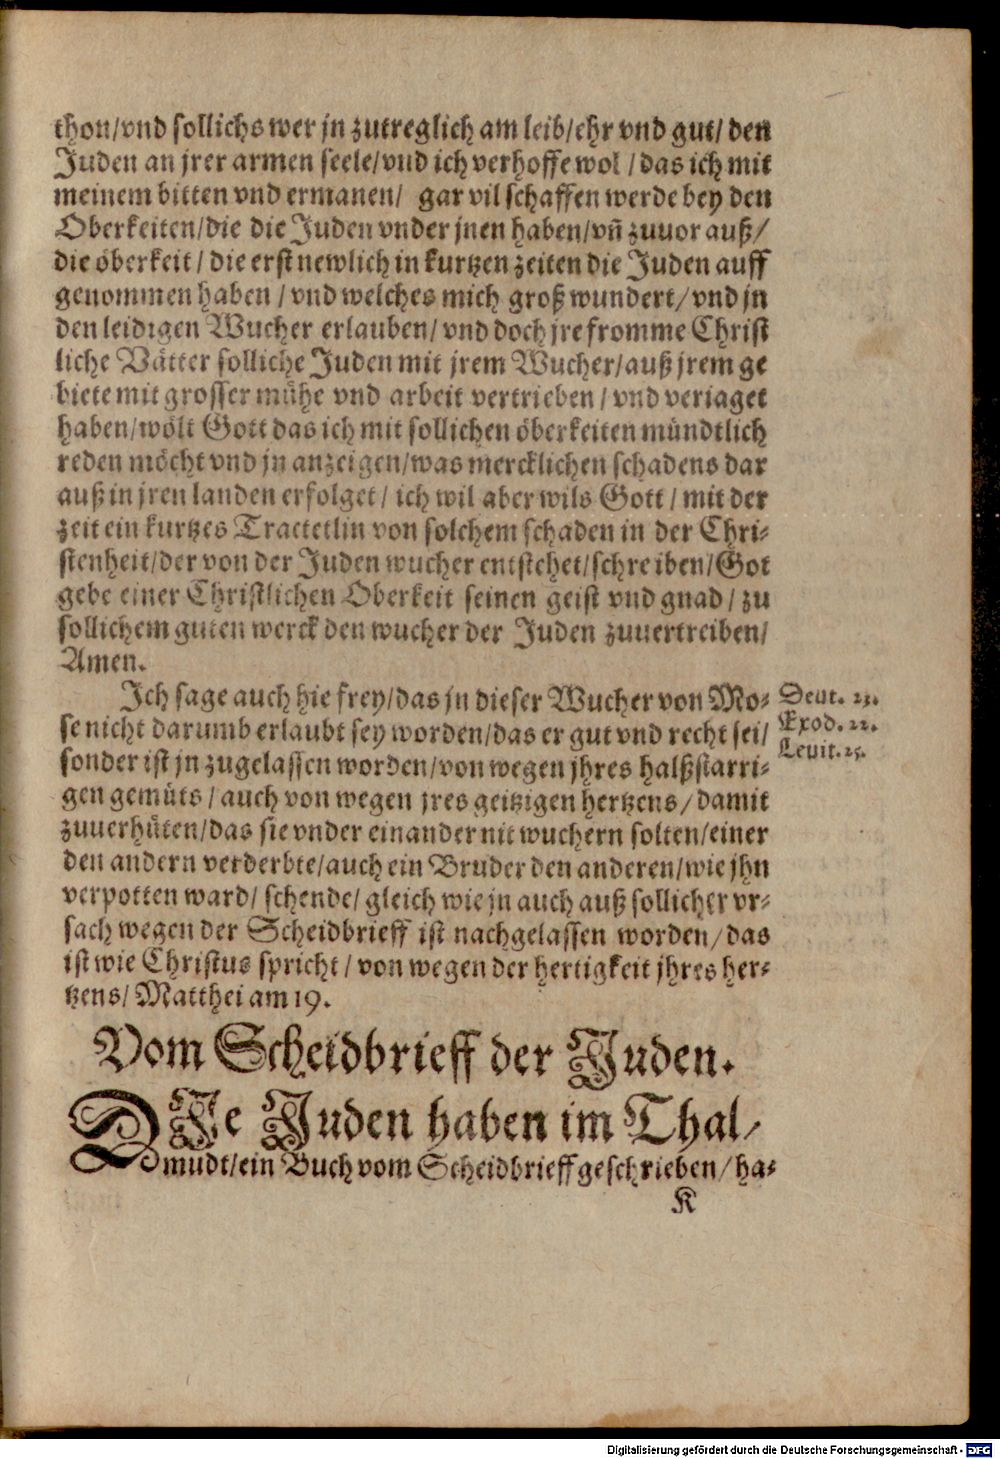 thon/vnd sollichs wer jn zutreglich am leib/ehr vnd gut/ den
Juden an jrer armen seele/vnd ich verhoffe wol / das ich mit
meinem bitten vnd ermanen/ gar vil schaffen werde bey den
Oberkeiten/die die Juden vnder jnen haben/vñ zuuor auß/
die öberkeit / die erst newlich in kurtzen zeiten die Juden auff
genommen haben / vnd welches mich groß wundert/vnd jn
den leidigen Wucher erlauben/ vnd doch jre fromme Christ
liche Vätter solliche Juden mit jrem Wucher/auß jrem ge
biete mit grosser mühe vnd arbeit vertrieben / vnd veriaget
haben/wölt Gott das ich mit sollichen öberkeiten mündtlich
reden möcht vnd jn anzeigen/was mercklichen schadens dar
auß in jren landen erfolget/ ich wil aber wils Gott / mit der
zeit ein kurtzes Tractetlin von solchem schaden in der Chri-
stenheit/der von der Juden wucher entstehet/schreiben/Got
gebe einer Christlichen Oberkeit seinen geist vnd gnad / zu
sollichem guten werck den wucher der Juden zuuertreiben/
Amen.
Ich sage auch hie frey/das jn dieser Wucher von Mo-
se nicht darumb erlaubt sey worden/das er gut vnd recht sei/
sonder ist jn zugelassen worden/von wegen jhres halßstarri-
gen gemüts / auch von wegen jres geitzigen hertzens/damit
zuuerhüten/das sie vnder einander nit wuchern solten/einer
den andern verderbte/auch ein Bruder den anderen/wie jhn
verpotten ward/ schende/ gleich wie jn auch auß sollicher vr-
sach wegen der Scheidbrieff ist nachgelassen worden/das
ist wie Christus spricht / von wegen der hertigkeit jhres her-
tzens/ Matthei am 19.
Deut. 23.
Exod. 22.
Leuit. 25.
Vom Scheidbrieff der Juden.
DJe Juden haben im Thal-
mudt/ein Buch vom Scheidbrieff geschrieben/ha-
K
Digitalisierung gefördert durch die Deutsche Forschungsgemeinschaft - DFG